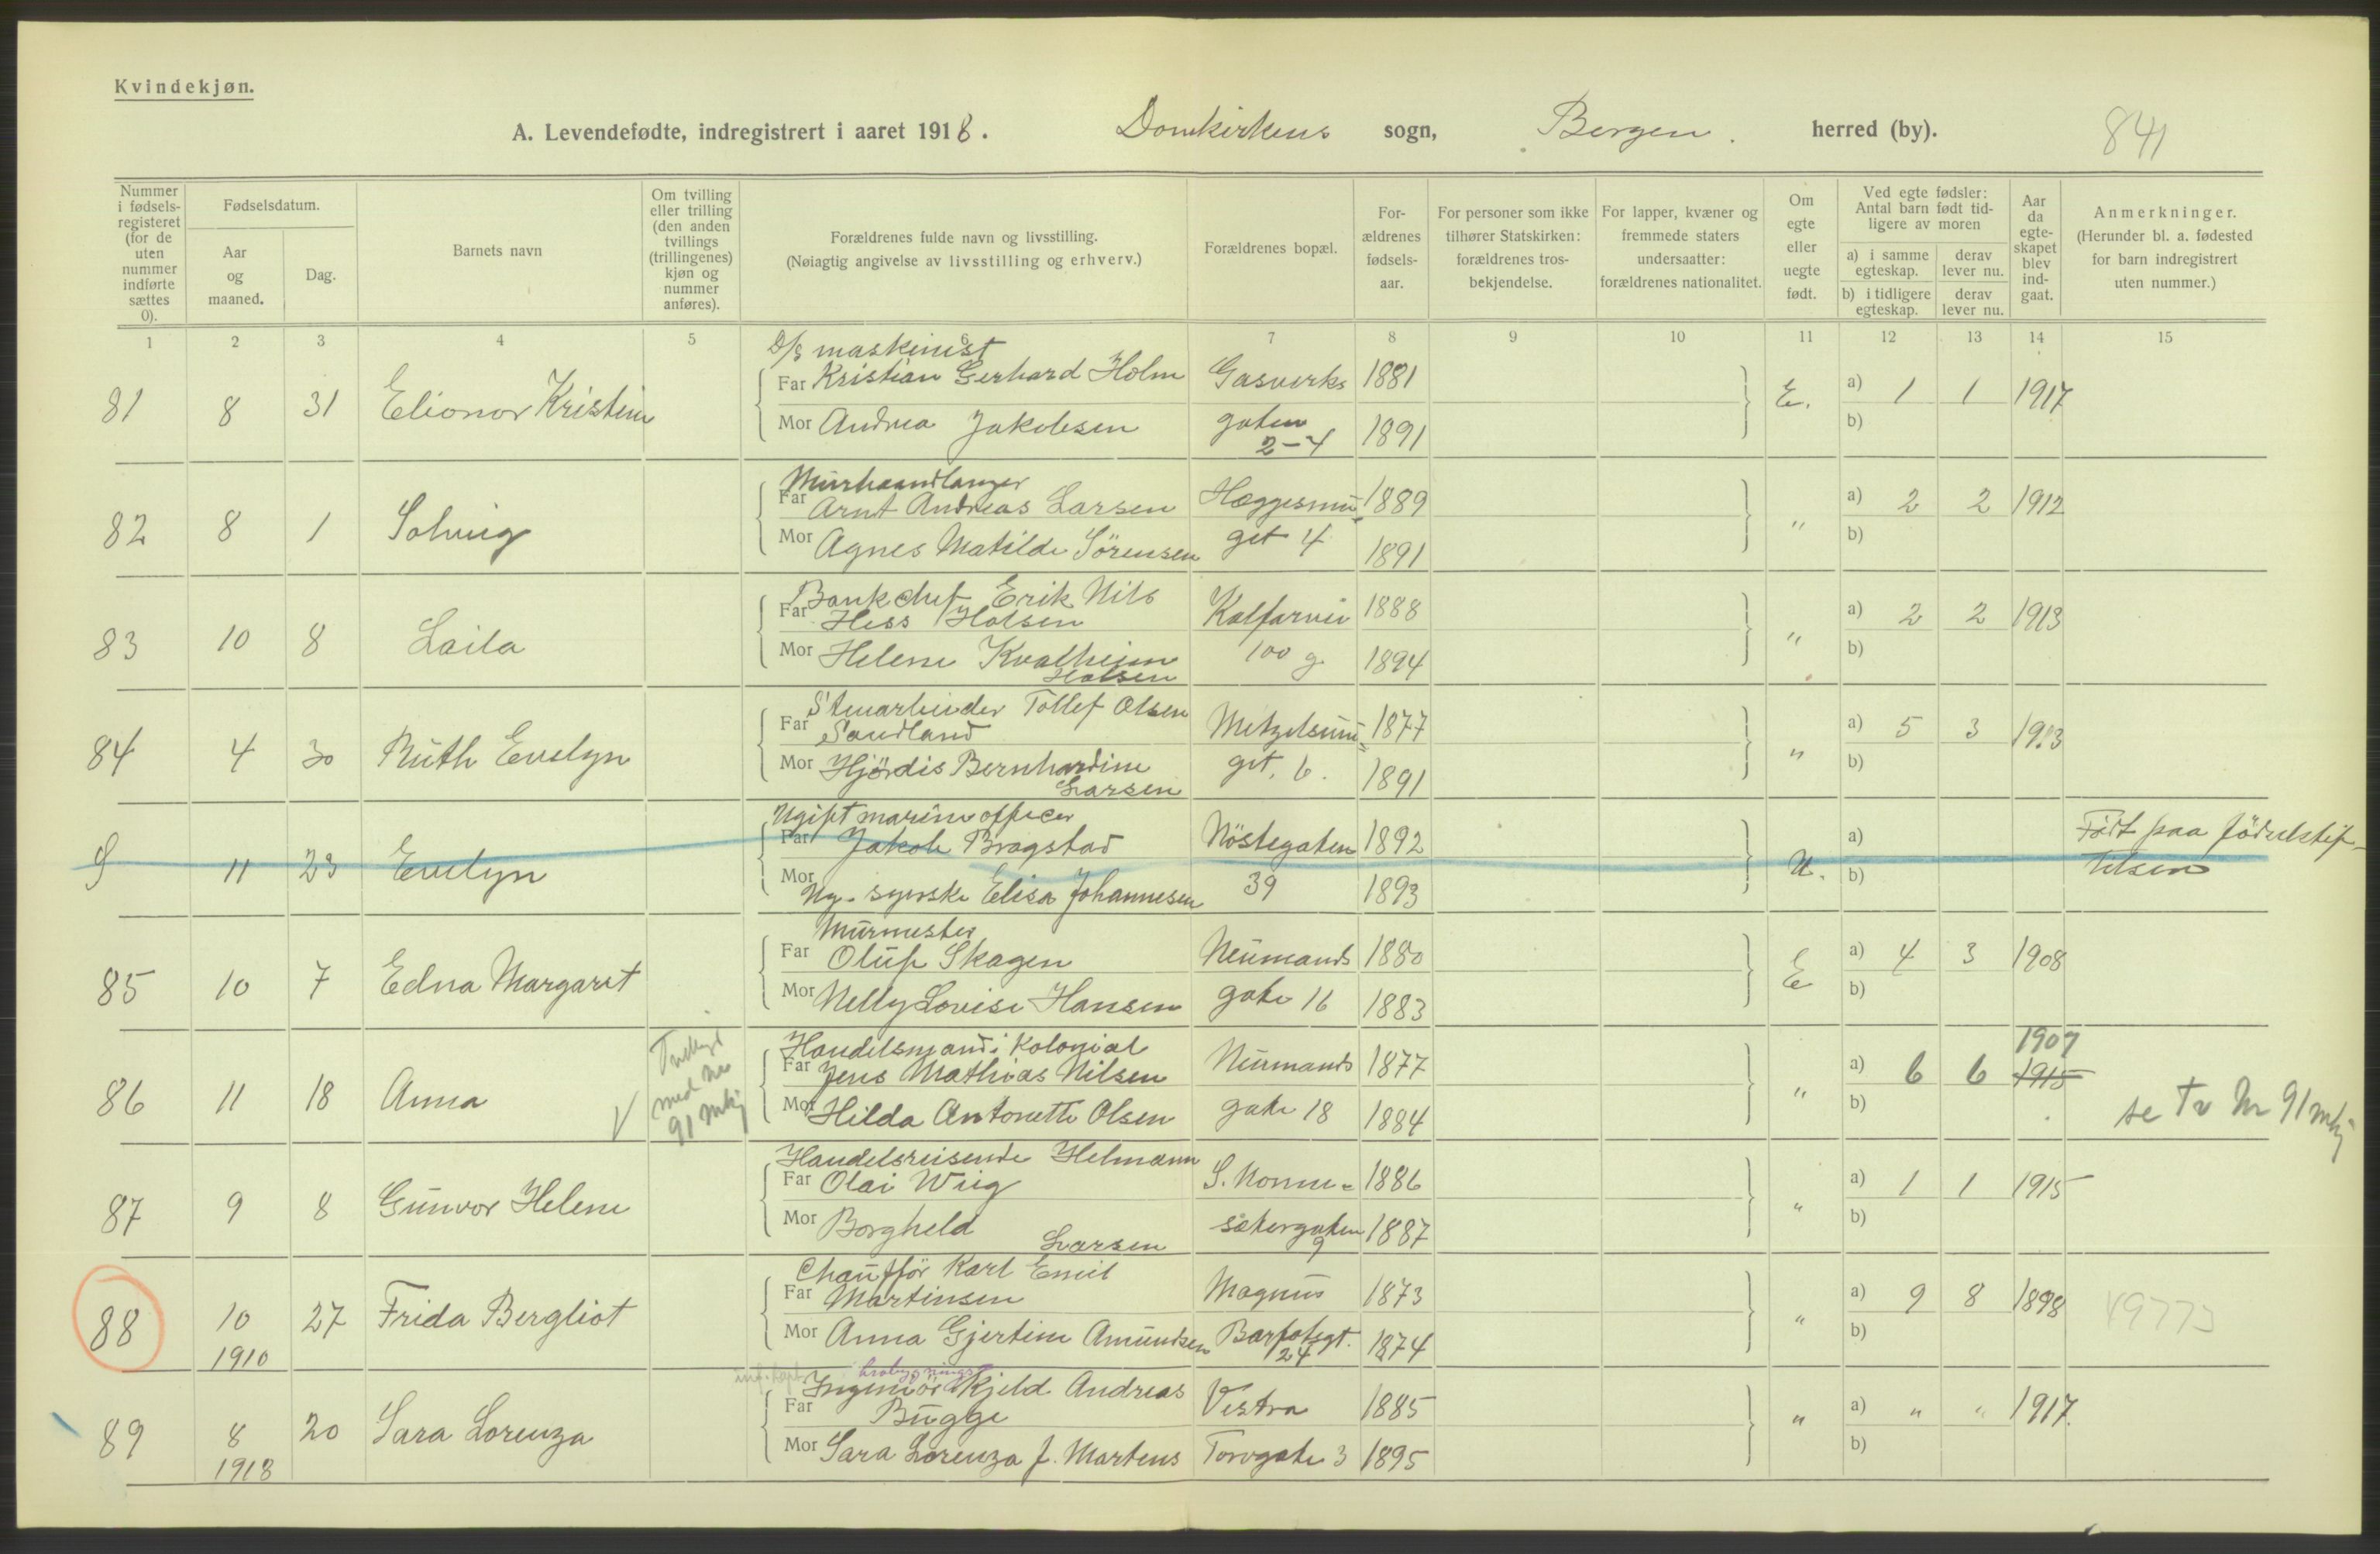 Kvindekjøn.
A. Levendefødte, indregistrert i aaret 1918. Domkirkens sogn, Bergen. herred (by). 841
Nummer i fødsels-registeret (for de uten nummer indførte sættes 0).
Fødselsdatum.
Aar og maaned.
Dag.
Barnets navn
Om tvilling eller trilling (den anden tvillings (trillingenes) kjøn og nummer anføres).
Forældrenes fulde navn og livsstilling.
(Nøiagtig angivelse av livsstilling og erhverv.)
Forældrenes bopæl.
For-ældrenes fødsels-aar.
For personer som ikke tilhører Statskirken: forældrenes tros-bekjendelse.
For lapper, kvæner og fremmede staters undersaatter: forældrenes nationalitet.
Om egte eller uegte født.
Ved egte fødsler: Antal barn født tid-ligere av moren
a) i samme egteskap. derav lever nu.
b) i tidligere egteskap. derav lever nu.
Aar da egte-skapet blev ind-gaat.
Anmerkninger.
(Herunder bl. a. fødested for barn indregistrert uten nummer.)
1 2 3 4 5 6 7 8 9 10 11 12 13 14 15
D/s maskinist
81 8 31 Elionor Kristine Far Kristian Gerhard Holm Gasverks 1881 E. a) 1 1 1917
Mor Andrea Jakobsen gaten 2-4 1891 b)
Murhaandlanger
82 8 1 Solveig Far Arnt Andreas Larsen Hæggesmu 1889 " a) 2 2 1912
Mor Agnes Matilde Sörensen get 4 1891 b)
Bankchef Erik Nils
83 10 8 Laila Far Hess Holsen Kalfarvei 1888 " a) 2 2 1913
Mor Helene Kvalheim Holsen 100 g. 1894 b)
Stenarbeider Tollef Olsen
84 4 30 Ruth Evelyn Far Sandland Metzelsmu 1877 " a) 5 3
Mor Hjördis Bernhardine Larsen get. 6. 1891 b)
Ugift marineofficer
11 23 Evelyn Far Jakob Bragstad Nöstegaten 1892 U. a) Födt paa födselstif-
Mor Ug. syerske Elisa Johannesen 39 1893 b) telsen
Murmester
85 10 7 Edna Margaret Far Oluf Skagen Neumands 1880 E a) 4 3 1908
Mor Nelly Lovise Hansen gate 16 1883 b)
Handelsmand i Kolonial 1907
86 11 18 Anna med no 91 mkj Far Jens Mathias Nilsen Neumands 1877 " a) 6 6 1915
Mor Hilda Antonette Olsen gate 18 1884 b) se Tv Nr 91 mkj
Handelsreisende Helmann
87 9 8 Gunvor Helene Far Olai Wiig S. Nonne- 1886 " a) 1 1 1915
Mor Borgheld Larsen sætergaten 9 1887 b)
Chaufför Karl Emil
88 10 1910 27 Frida Bergliot Far Martinsen Magnus 1873 " a) 9 8 1898
Mor Anna Gjertine Amundsen Barfotsgt. 24 1874 b)
Ingeniör Kjeld Andreas
89 8 1918 20 Sara Lorenza Far Bugge Vestra 1885 " a) " " 1917.
Mor Sara Lorenza f. Martens Torvgate 3 1895 b)